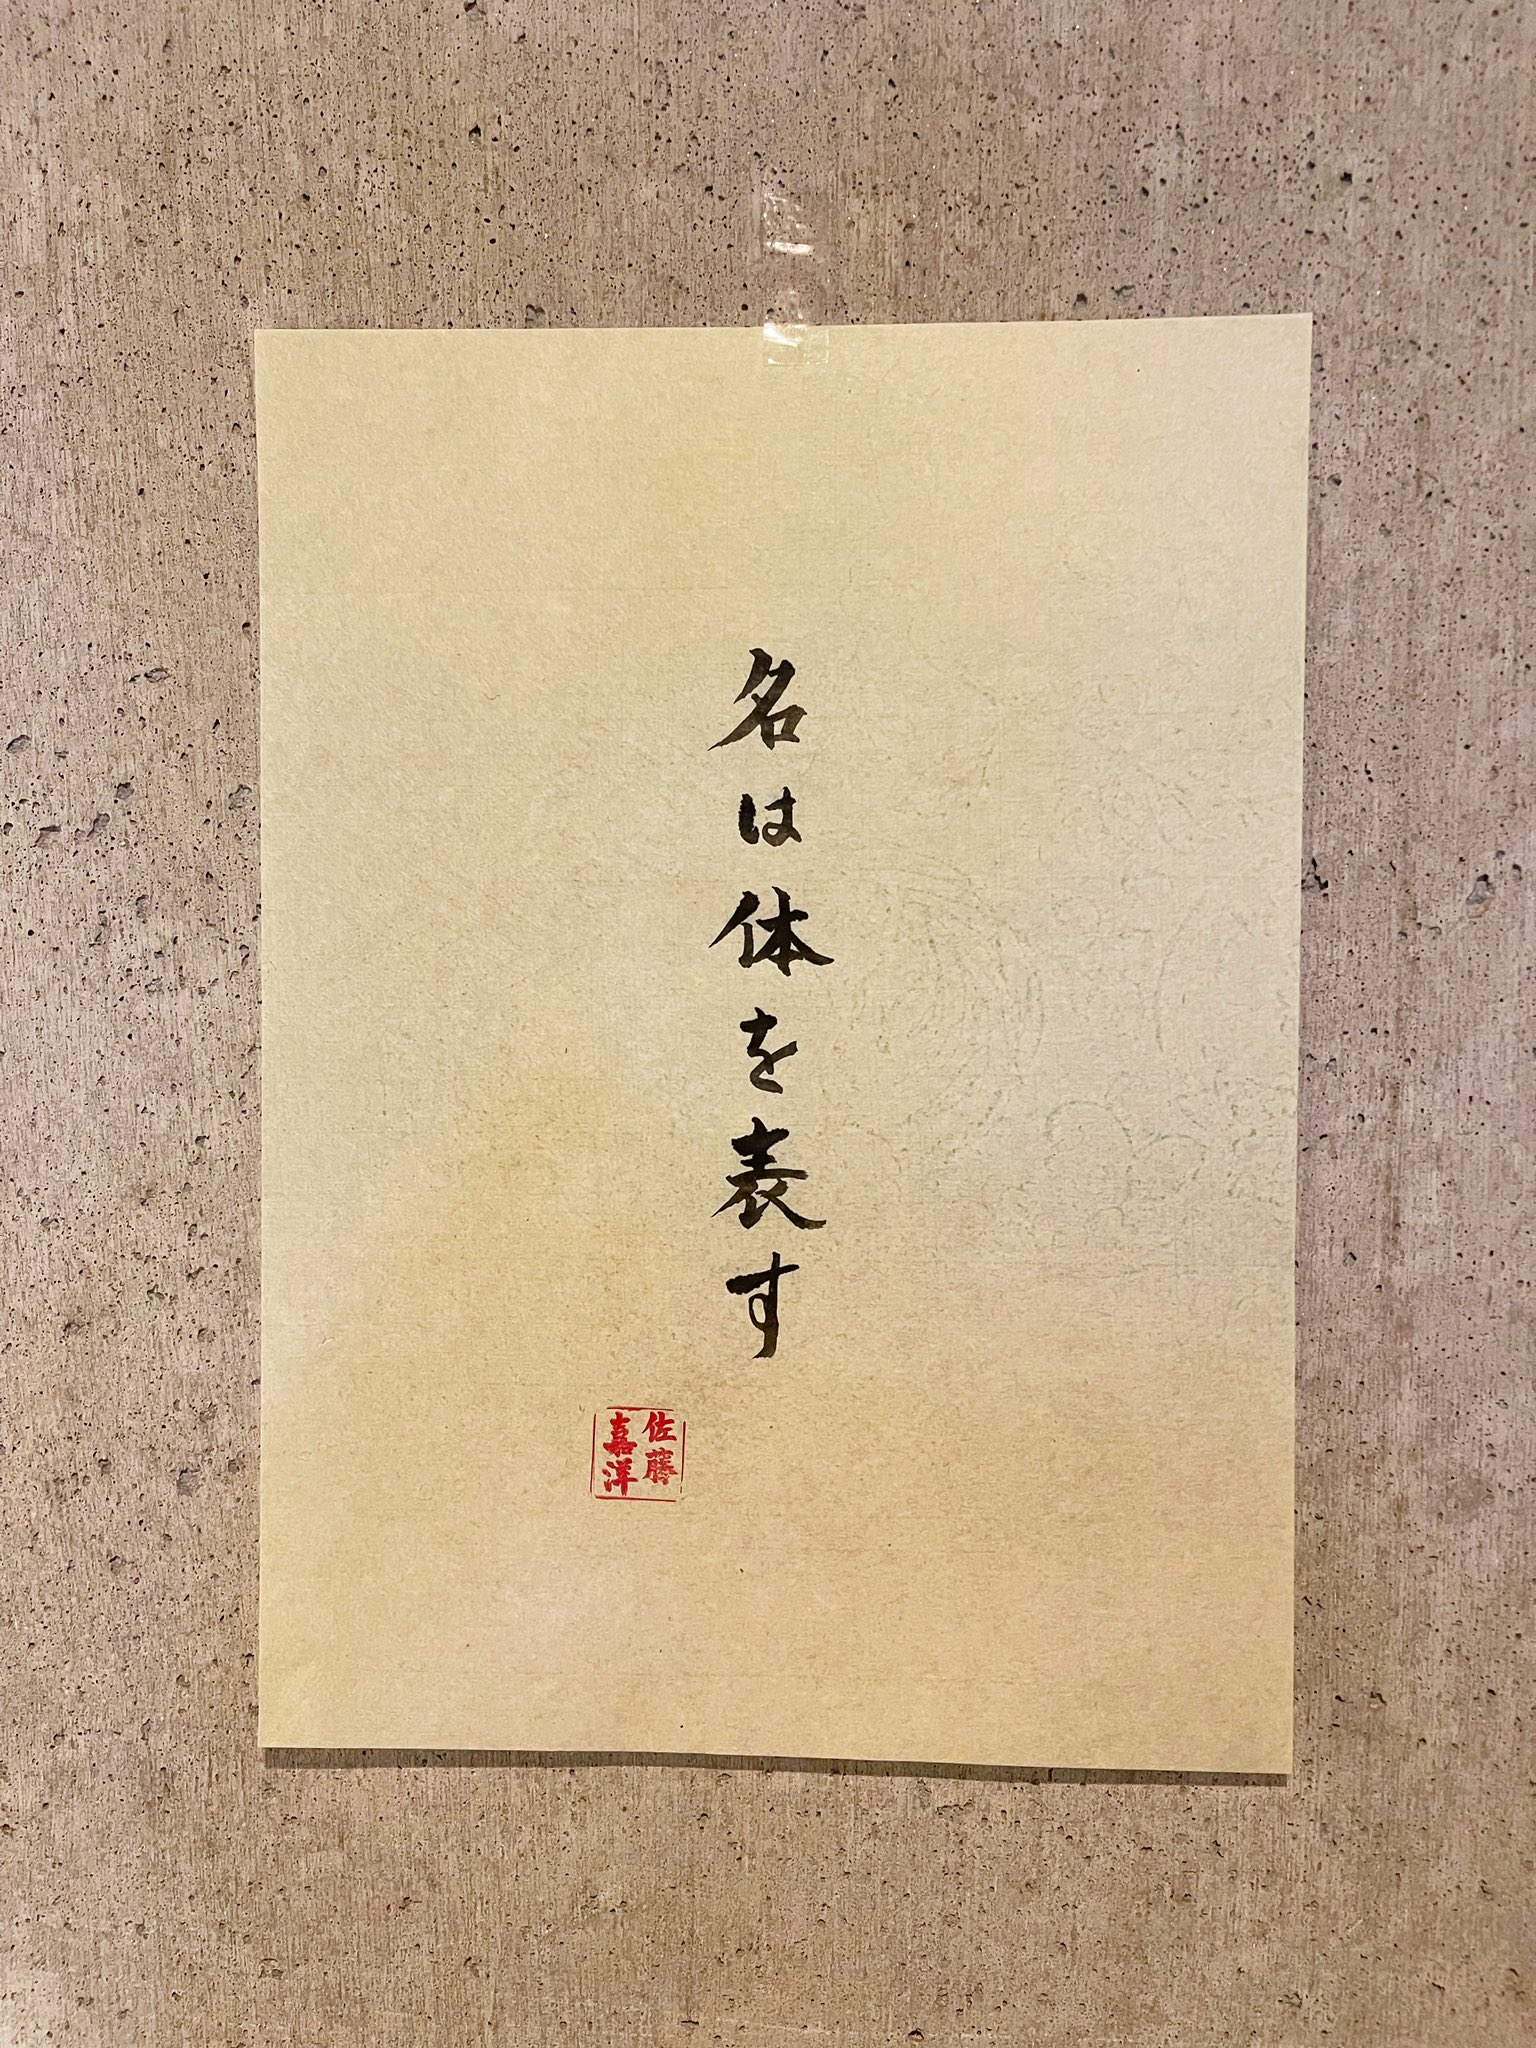 名は体を表す
佐藤
嘉洋